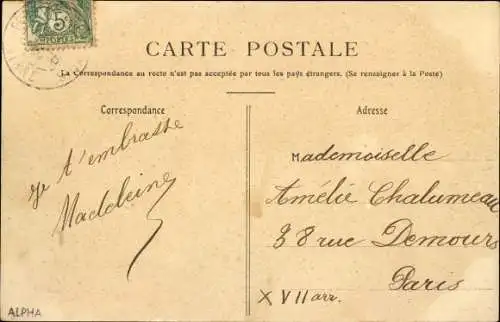 5
CARTE POSTALE
La Correspondance au recto n'est pas acceptée par tous les pays étrangers. (Se renseigner à la Poste)
Correspondance
Je t'embrasse
Madeleine
Adresse
Mademoiselle
Amélie Chalumeau
38 rue Demours
Paris
XVII arr.
ALPHA